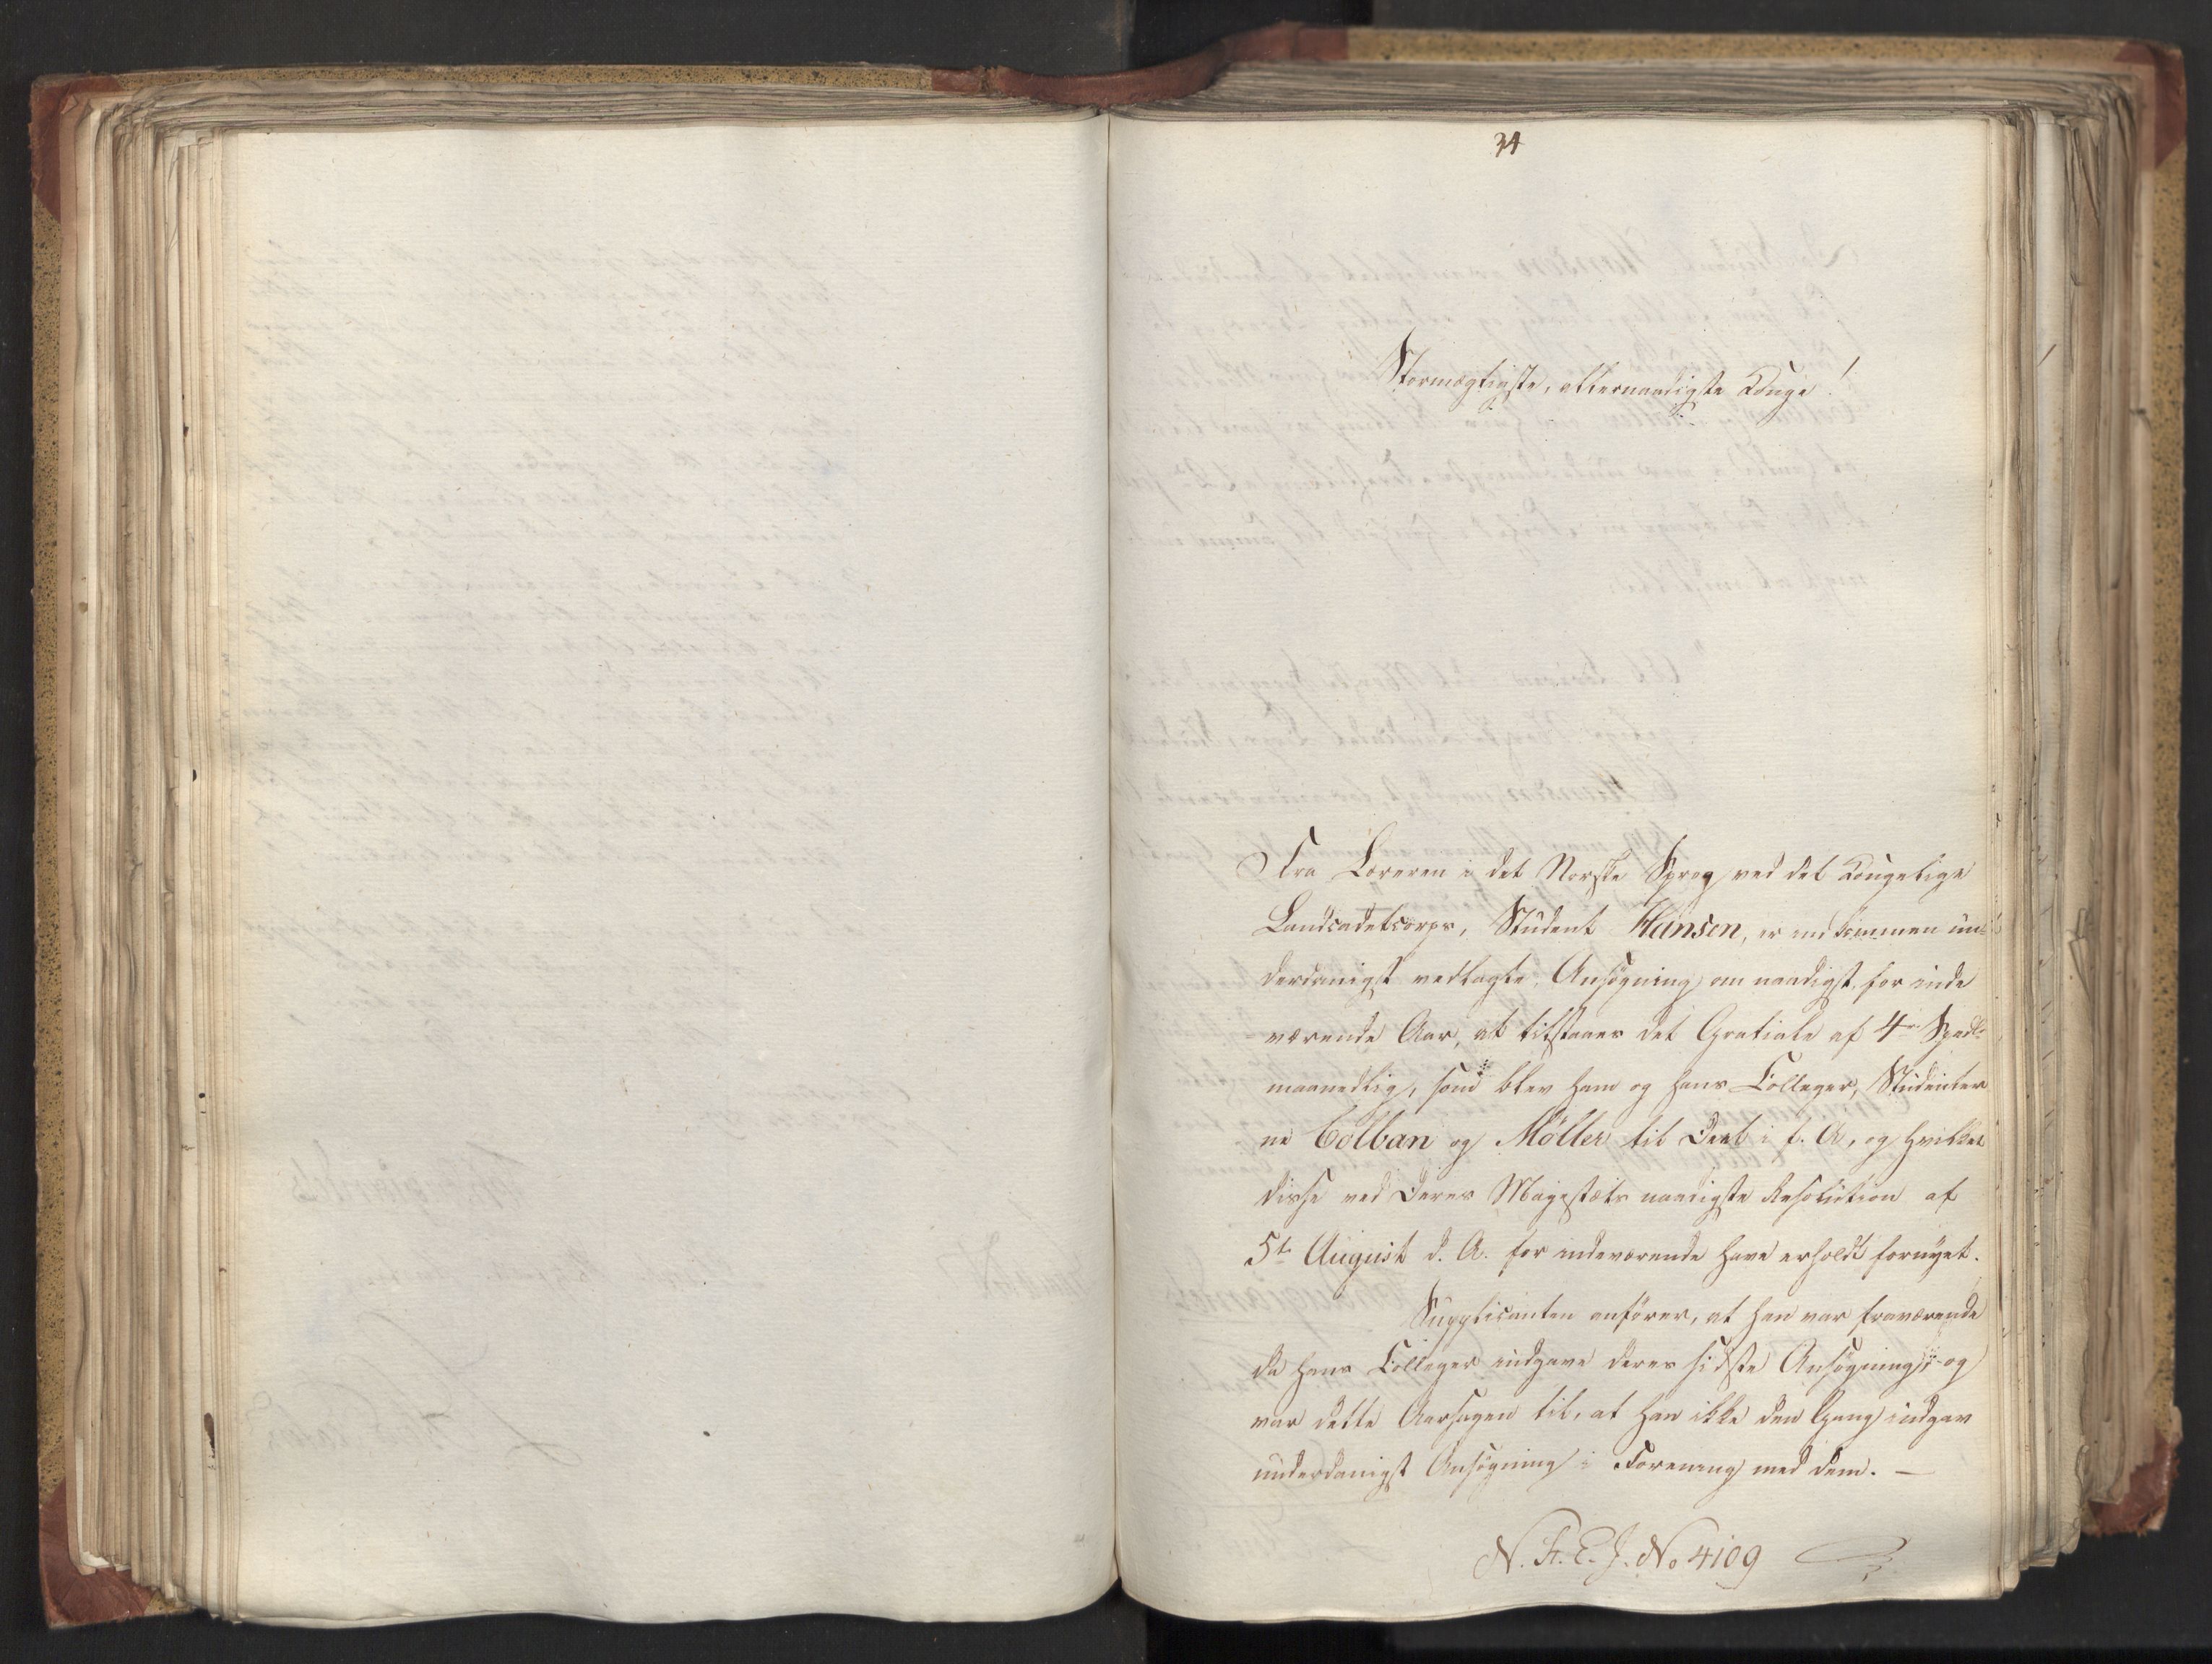 34
Stormægtigste, allernaadigste Konge!
Fra Læreren i det Norske Sprog ved det Kongelige
Landcadetcorps, Student Hansen, er indkommen un-
derdanigst vedlagte Ansøgning om naadigst for inde
værende Aar, at tilstaaes det Gratiale af 4re Spd:
maanedlig, som blev ham og hans Colleger, Studenter
ne Colban og Møller til Deel i f. A., og hvilket
disse ved Deres Majestæts naadigste Resolution af
5te August d. A. for indeværende have erholdt fornyet.
Supplicanten anfører, at han var fraværende
da hans Colleger indgave deres sidste Ansøgning, og
var dette Aarsagen til, at han ikke den Gang indgav
underdanigst Ansøgning i Forening med dem. —
N. A. E. J. No 4109